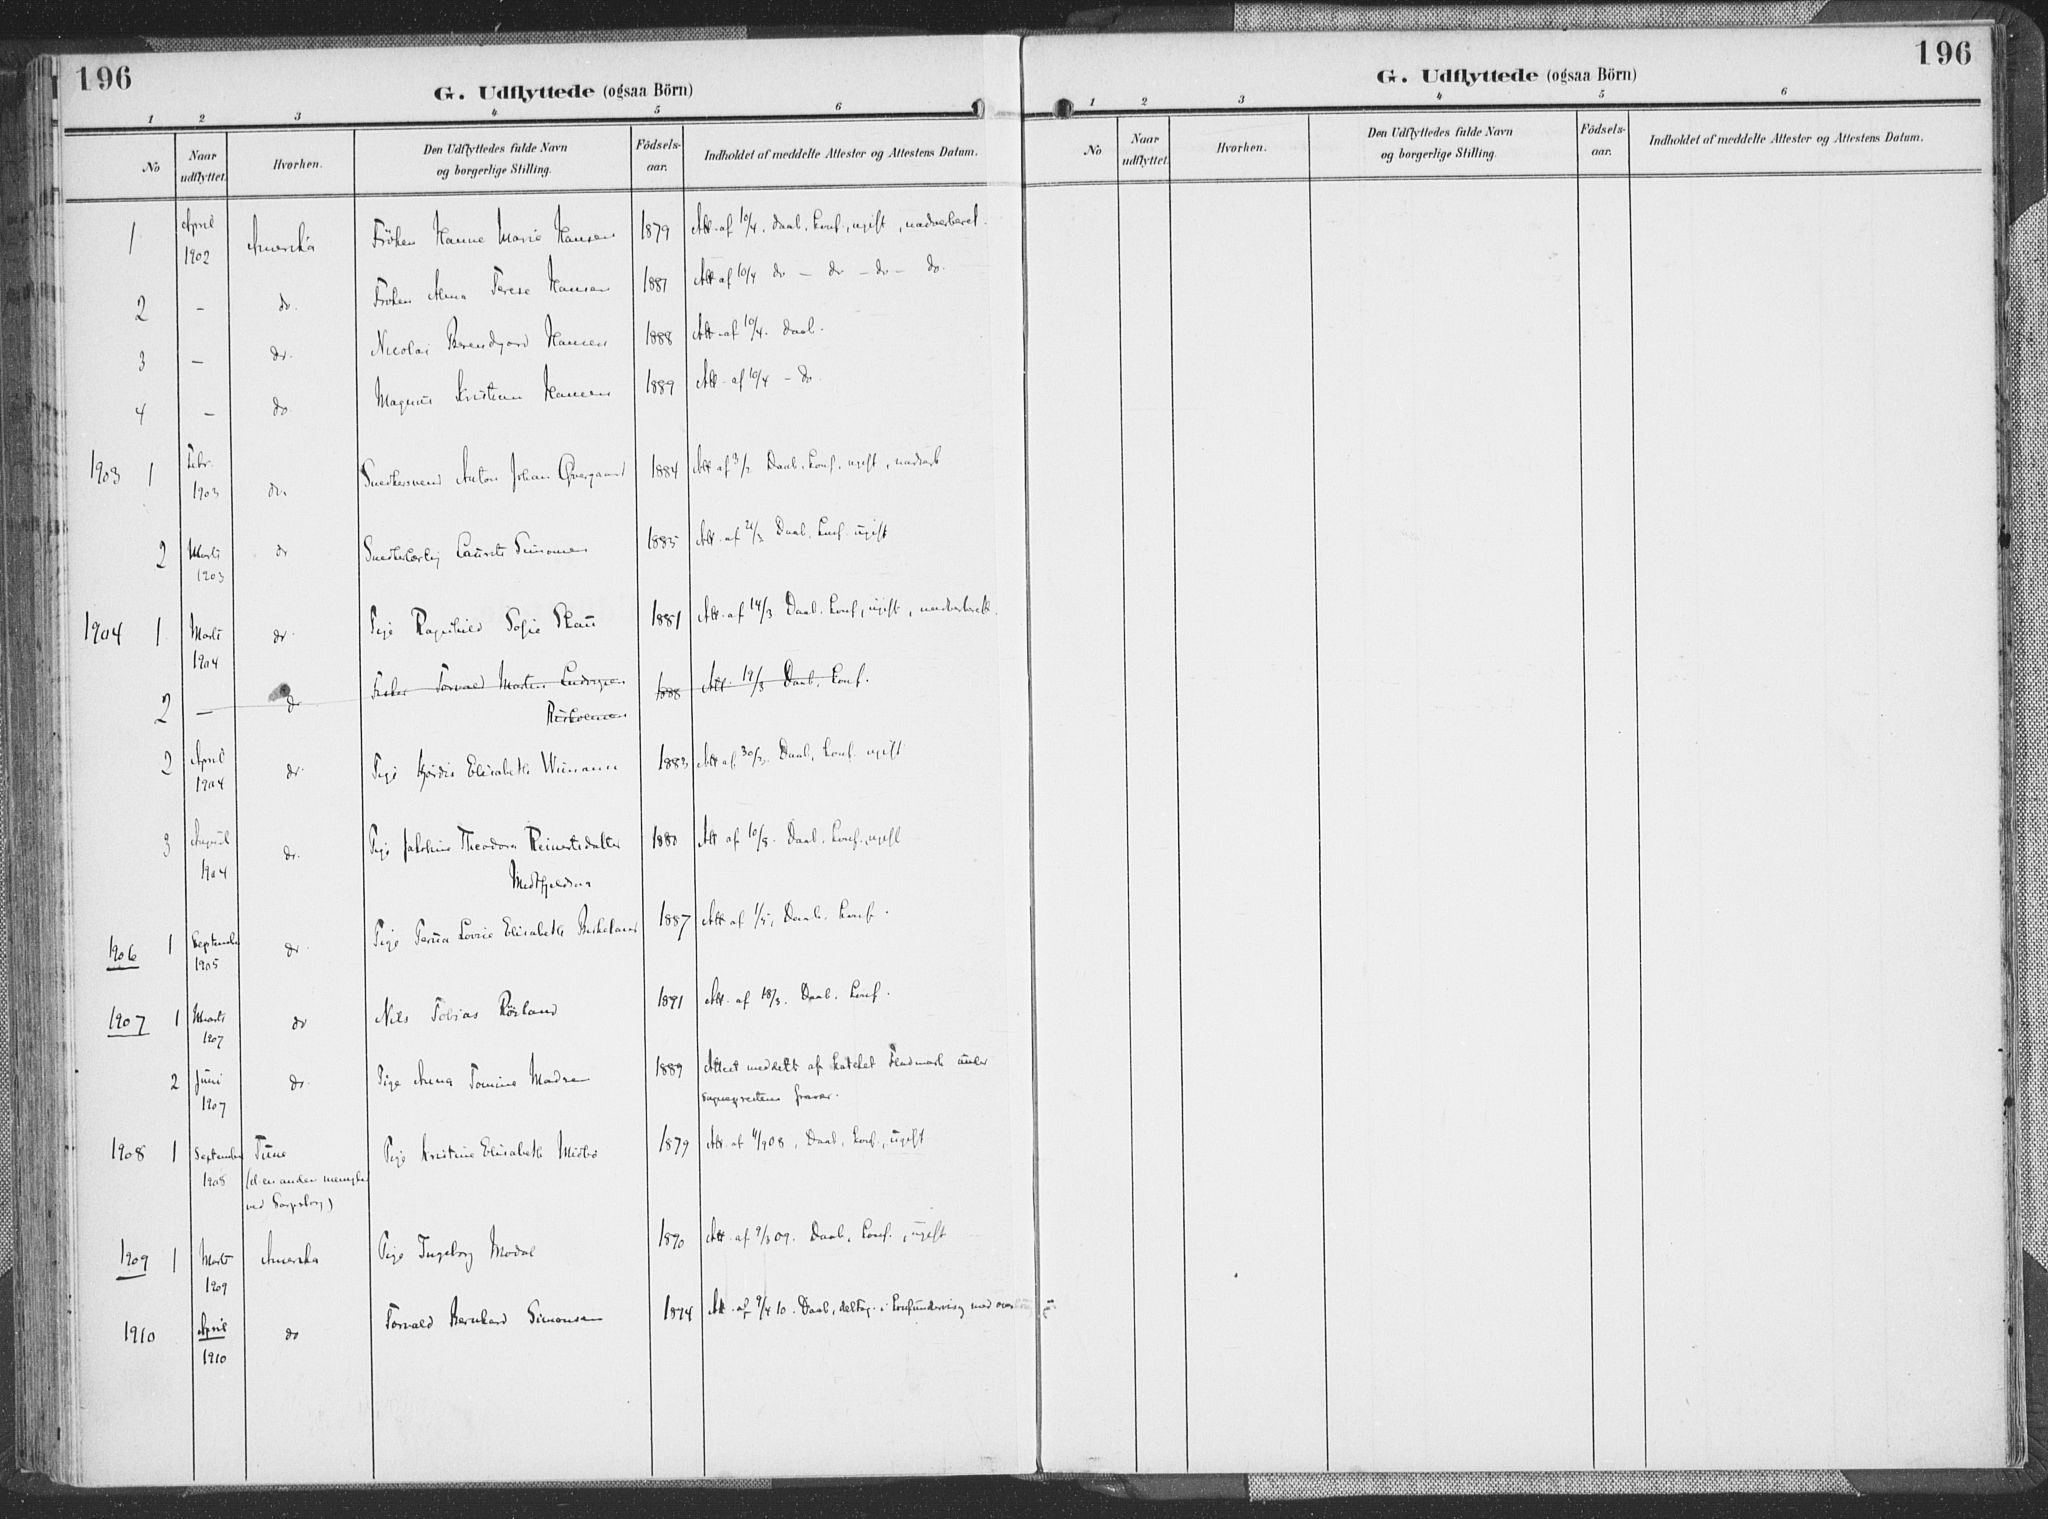 196
G. Udflyttede (ogsaa Börn)
1 2 3 4 5 6
No Naar udflyttet. Hvorhen. Den Udflyttedes fulde Navn og borgerlige Stilling. Födsels-aar. Indholdet af meddelte Attester og Attestens Datum.
1 April 1902 Amerika Fröken Hanne Marie Hansen 1879 Att. af 10/4. Daab, konf., ugift, nadverberet.
2 — do. Fröken Alma Terese Hansen 1881 Att af 10/4 do — do — do — do.
3 — do. Nicolai Hansen 1888 Att. af 10/4. Daab.
4 — do Magnus Kristian Hansen 1889 Att. af 10/4 — do.
1903 1 Febr. 1903 do. Snedkersvend Anton Johan 1884 Att af Daab, konf. ugift, nadverb
2 Marts 1903 do Laurits Simonsen 1885 Att. af Daab, konf. ugift
1904 1 Marts 1904 do. Pige Ragnhild Sofie Skau 1881 Att. af 14/3 Daab, konf, ugift, nadverberett.
2 — do Torvald Martin 1888 Att. 19/3 Daab, konf.
2 April 1904 do. Pige Hjördis Elisabeth 1883 Att af 30/3. Daab, konf. ugift
3 August 1904 do. Pige Theodora Reinertsdatter 1880 Att af 10/8. Daab, konf., ugift
1906 1 September 1905 do. Pige Lovise Elisabeth 1887 Att af 1/5, Daab, konf.
1907 1 Marts 1907 do Nils Tobias 1891 Att. af 18/3. Daab, konf.
2 Juni 1907 do. Pige Anna Tomine 1889 Attest meddelt af under
sogneprestens fravær.
1908 1 September 1908 Tune Pige Kristine Elisabeth 1879 Att. af Daab, konf, ugift
ved Sarpsborg)
1909 1 Marts 1909 Amerika Pige Ingeborg Modal 1890 Att. af 9/3 09. Daab, konf., ugift
1910 April 1910 do Torvald Bernhard Simonsen 1874 Att. af 9/4 10. Daab, deltog i konfundervisg med
196
G. Udflyttede (ogsaa Börn)
1 2 3 4 5 6
No Naar udflyttet. Hvorhen. Den Udflyttedes fulde Navn og borgerlige Stilling. Födsels-aar. Indholdet af meddelte Attester og Attestens Datum.